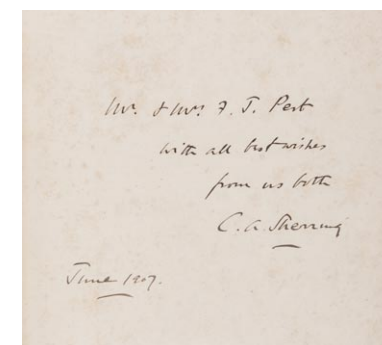 Mr. & Mrs. F. J. Pert
with all best wishes
from us both
C. A. Sherring
June 1907.